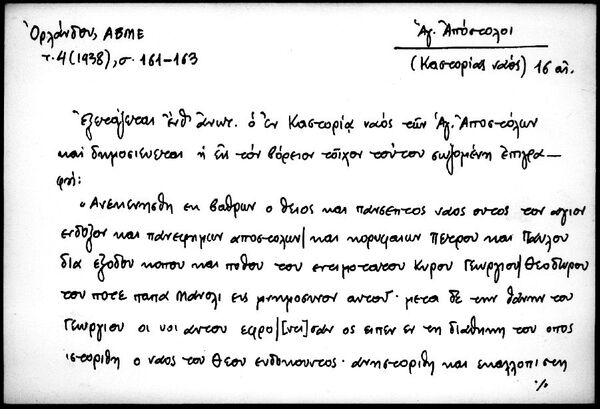 Ὀρλάνδος ΑΒΜΕ
Ἁγ. Ἀπόστολοι
τ. 4 (1938), σ. 161-163
(Καστορίας ναός) 16 αἰ.
Ἐξετάζεται ἐνθ' ἀνωτ. ὁ ἐν Καστορίᾳ ναός τῶν Ἁγ. Ἀποστόλων
καί δημοσιεύεται ἡ ἐπί τόν βόρειον τοῖχον τούτου σωζομένη ἐπιγρα-
φή:
"Ανεκενησθη εκ βαθρων ο θειος και πανσεπτος ναος ουτος τον αγιον
ενδοξον και πανεφημων αποστολων/και κορυφαιων Πετρου και Παυλου
δια εξοδου κοπου και ποθου του ετιμοτατου Κυρου Γεωργιου/Θεοδωρου
του ποτε παπα Μανολι εις μνημοσυνον αυτου· μετα δε την θανην του
Γεωργιου οι υοι αυτου εφρο/[ντι]σαν ος ειπεν εν τη διαθηκη του οπος
ιστοριθη ο ναος του Θεου ευδοκουντος· ανηστοριθη και εκαλλοπιστη
%